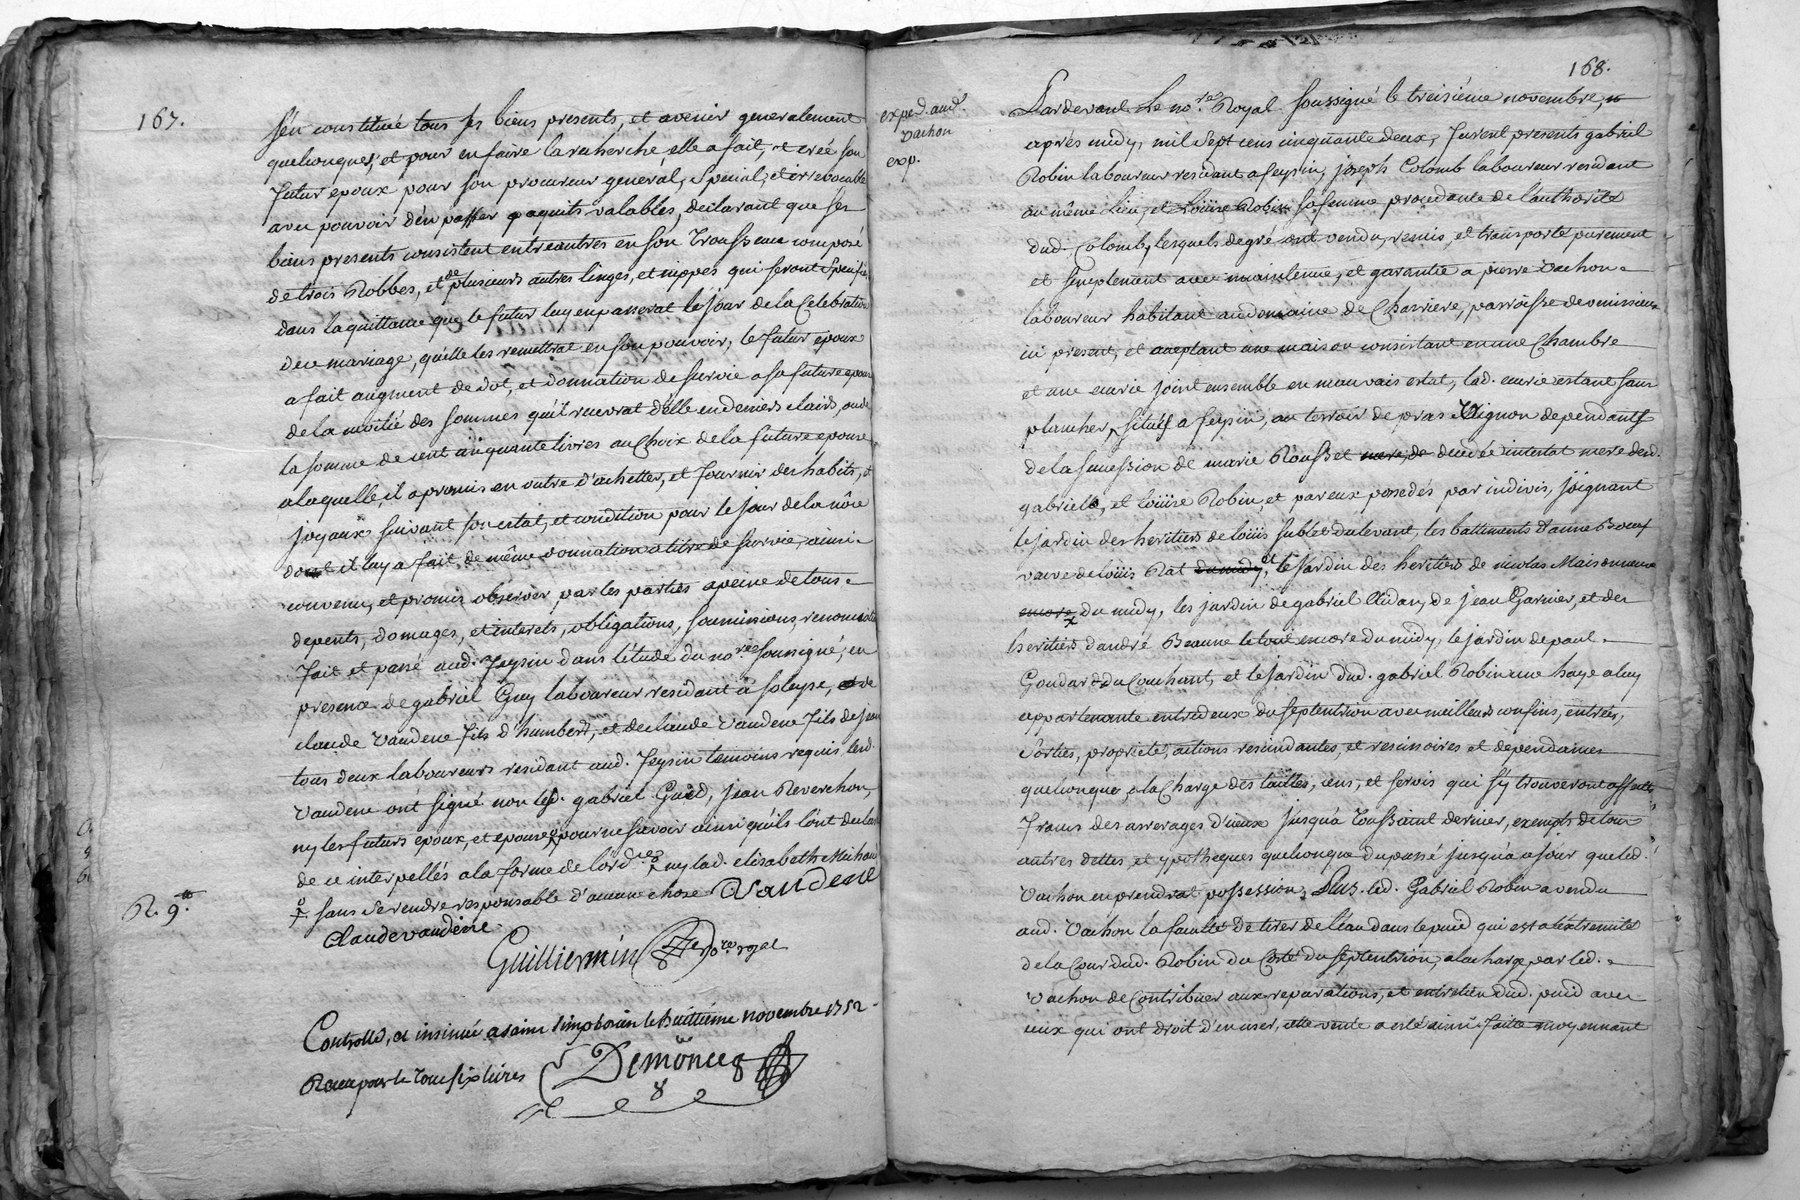 167.
s'en constitué tous ses biens presents, et avenir generalement
quelconques, et pour en faire la recherche elle a fait, et creé son
futur epoux pour son procureur general, special, et irrevocable
avec pouvoir d'en passer quaquits valables, declarant que ses
biens presents consistent entreautres en son Trousseau composé
de trois Robbes, et de plusieurs autres linges, et nippes qui seront specifiés
dans la quittance que le futur luy en passerat le jour de la Celebration
de ce mariage, qu'elle les remettrat en son pouvoir, le futur epoux
a fait augment de dot, et donnation de survie a sa future epouse
de la moitié des sommes qu'il recevrat d'elle en deniers clairs, ou de
la somme de cent cinquante livres au Choix de la future epouse
a laquelle, il a promis en outre d'achetter, et fournir des habits, et
joyaux suivant son estat, et condition pour le jour de la nôce
dont il luy a fait de même donnation a titre de survie, ainsi
convenu, et promis observer par les parties a peine de tous
depents, domages, et interets, obligations, soumissions, renonciations
fait et passé aud. feysin dans l'étude du nore soussigné, en
presence de gabriel Guy laboureur residant à soleyse, et de
claude vaudene fils d'humbert, et de claude vaudene fils de jean
tous deux laboureurs residant aud. feysin temoins requis lesd.
vaudene ont signé non led. gabriel Gued, jean Reverchon,
ny les futurs epoux, et epouse pour ne savoir ainsi qu'ils l'ont declaré
de ce interpellés a la forme de l'ordce ny lad. elisabeth Michon
sans se rendre responsable d'aucune chose Vaudene
R. 9tt
Claude vaudene
Guilliermin nore royal
Controllé, et insinué a saint simphorien le huittième novembre 1752
Receu pour le tout six livres Demönceg
168.
exped. aud.
vachon
exp.
Pardevant Le nore Royal soussigné le treisième novembre,
aprés midy, mil sept cens cinquante deux, furent presents gabriel
Robin laboureur residant a feysin, joseph Colomb laboureur residant
au même lieu, et Loüise Robin sa femme procedante de l'authorité
dud. Colomb, lesquels de gré ont vendu, remis, et transporté purement
et simplement avec maintenue, et garantie a pierre vachon
laboureur habitant au domaine de Charriere, parroisse de venissieux
ici present, et aceptant une maison consistant en une Chambre
et une eurie joint ensemble en mauvais estat, lad. eurie estant sans
plancher, situés a feysin, au terroir de pras Mignon dependants
de la succession de marie Rousset mere, de decedée intestat mere desd.
gabriel, et loüise Robin, et par eux possedés par indivis, joignant
le jardin des heritiers de loüis sublet du levant, les battiments d'anne Boeuf
vaeve de loüis Rat du midy, et le jardin des heritiers de nicolas Maisonneuve
encore du midy, les jardin de gabriel Audan, de jean Garnier, et des
heritiers d'andré Beaune le tout encore du midy, le jardin de paul
Goudard du Couchant, et le jardin dud. gabriel Robin une haye a luy
appartenante entre deux du septentrion avec meilleurs confins, entrées,
sorties, proprieté, actions rescindantes, et rescisoires et dependances
quelconques, a la Charge des tailles, cens, et servis qui s'y trouveront affectés,
francs des arrerages d'iceux jusqu'a toussaint dernier, exempts de tous
autres dettes, et ypotheques quelconque du passé jusqu'a ajour que led.
vachon en prendrat possession; Plus led. Gabriel Robin a vendu
aud. vachon la faculté de tirer de l'eau dans le puid qui est a l'extremité
de la Cour dud. Robin du Coté du septentrion, a la charge par led.
vachon de Contribuer aux reparations, et entretien dud. puid avec
ceux qui ont droit d'en user, cette vente a esté ainsi faite moyennant